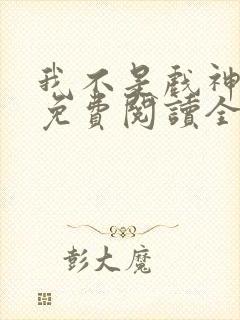 我不是戲神
免費閱讀全
彭大魔